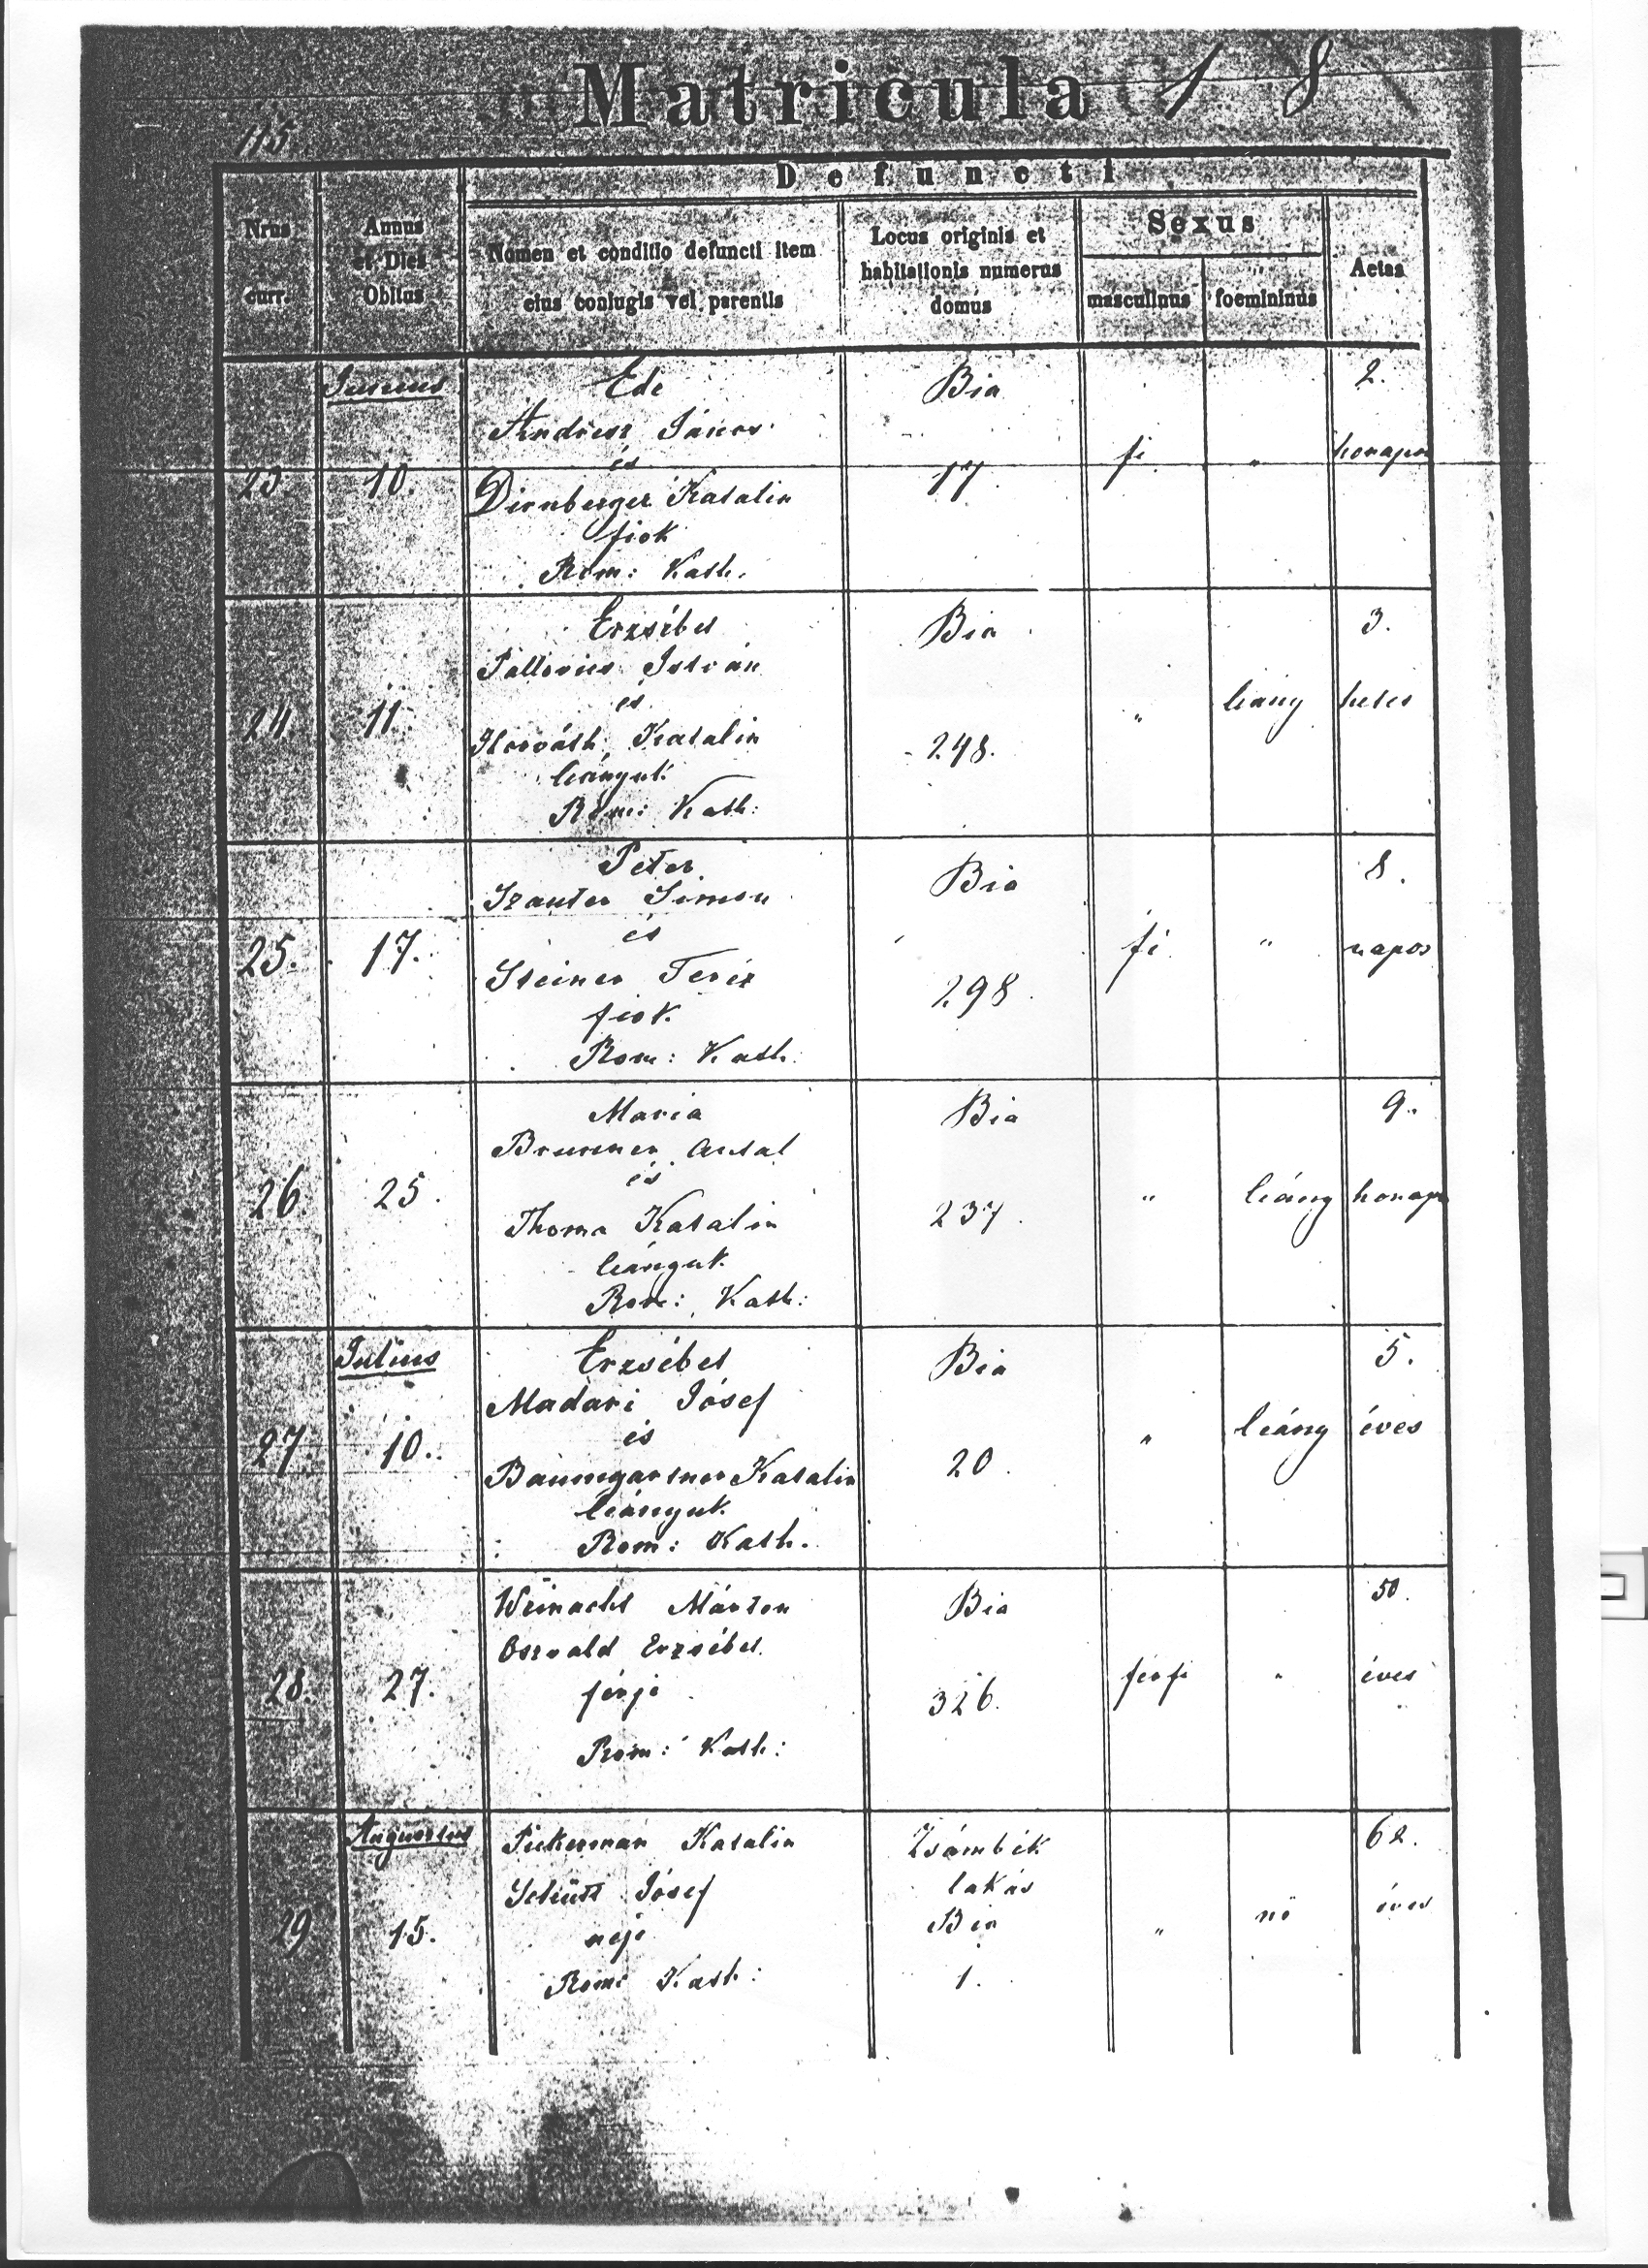 Matricula 1 8
115.
Defuncti
Nrus curr.
Annus et Dies Obitus
Nomen et conditio defuncti item eius coniugis vel parentis
Locus originis et habitationis numerus domus
Sexus
masculinus
foemininus
Aetas
Junius
23.
10.
Ede
János
és
Dirnberger Katalin
fiok
Rom: Kath.
Bia
17
fi
"
2.
honapos
24.
11.
Erzsébet
István
és
Horváth Katalin
leányuk
Rom: Kath:
Bia
248.
"
leány
3.
hetes
25.
17.
Péter
Szauter Simon
és
Steiner Teréz
fiok.
Rom: Kath:
Bia
298
fi
"
8.
napos
26.
25.
Maria
Brunner Antal
és
Thoma Katalin
leányuk.
Rom: Kath:
Bia
237
"
leány
9.
honapos
Julius
27.
10.
Erzsébet
Madari Jósef
és
Baumgartner Katalin
leányuk.
Rom: Kath.
Bia
20.
"
leány
5.
éves
28.
27.
Weinacht Márton
Oszvald Erzsébet
férje
Rom: Kath:
Bia
326.
férfi
"
50.
éves
Augustus
29
15.
Katalin
Schütt Jósef
neje
Rom: Kath:
Zsámbék
lakás
Bia
1.
"
nő
62.
éves